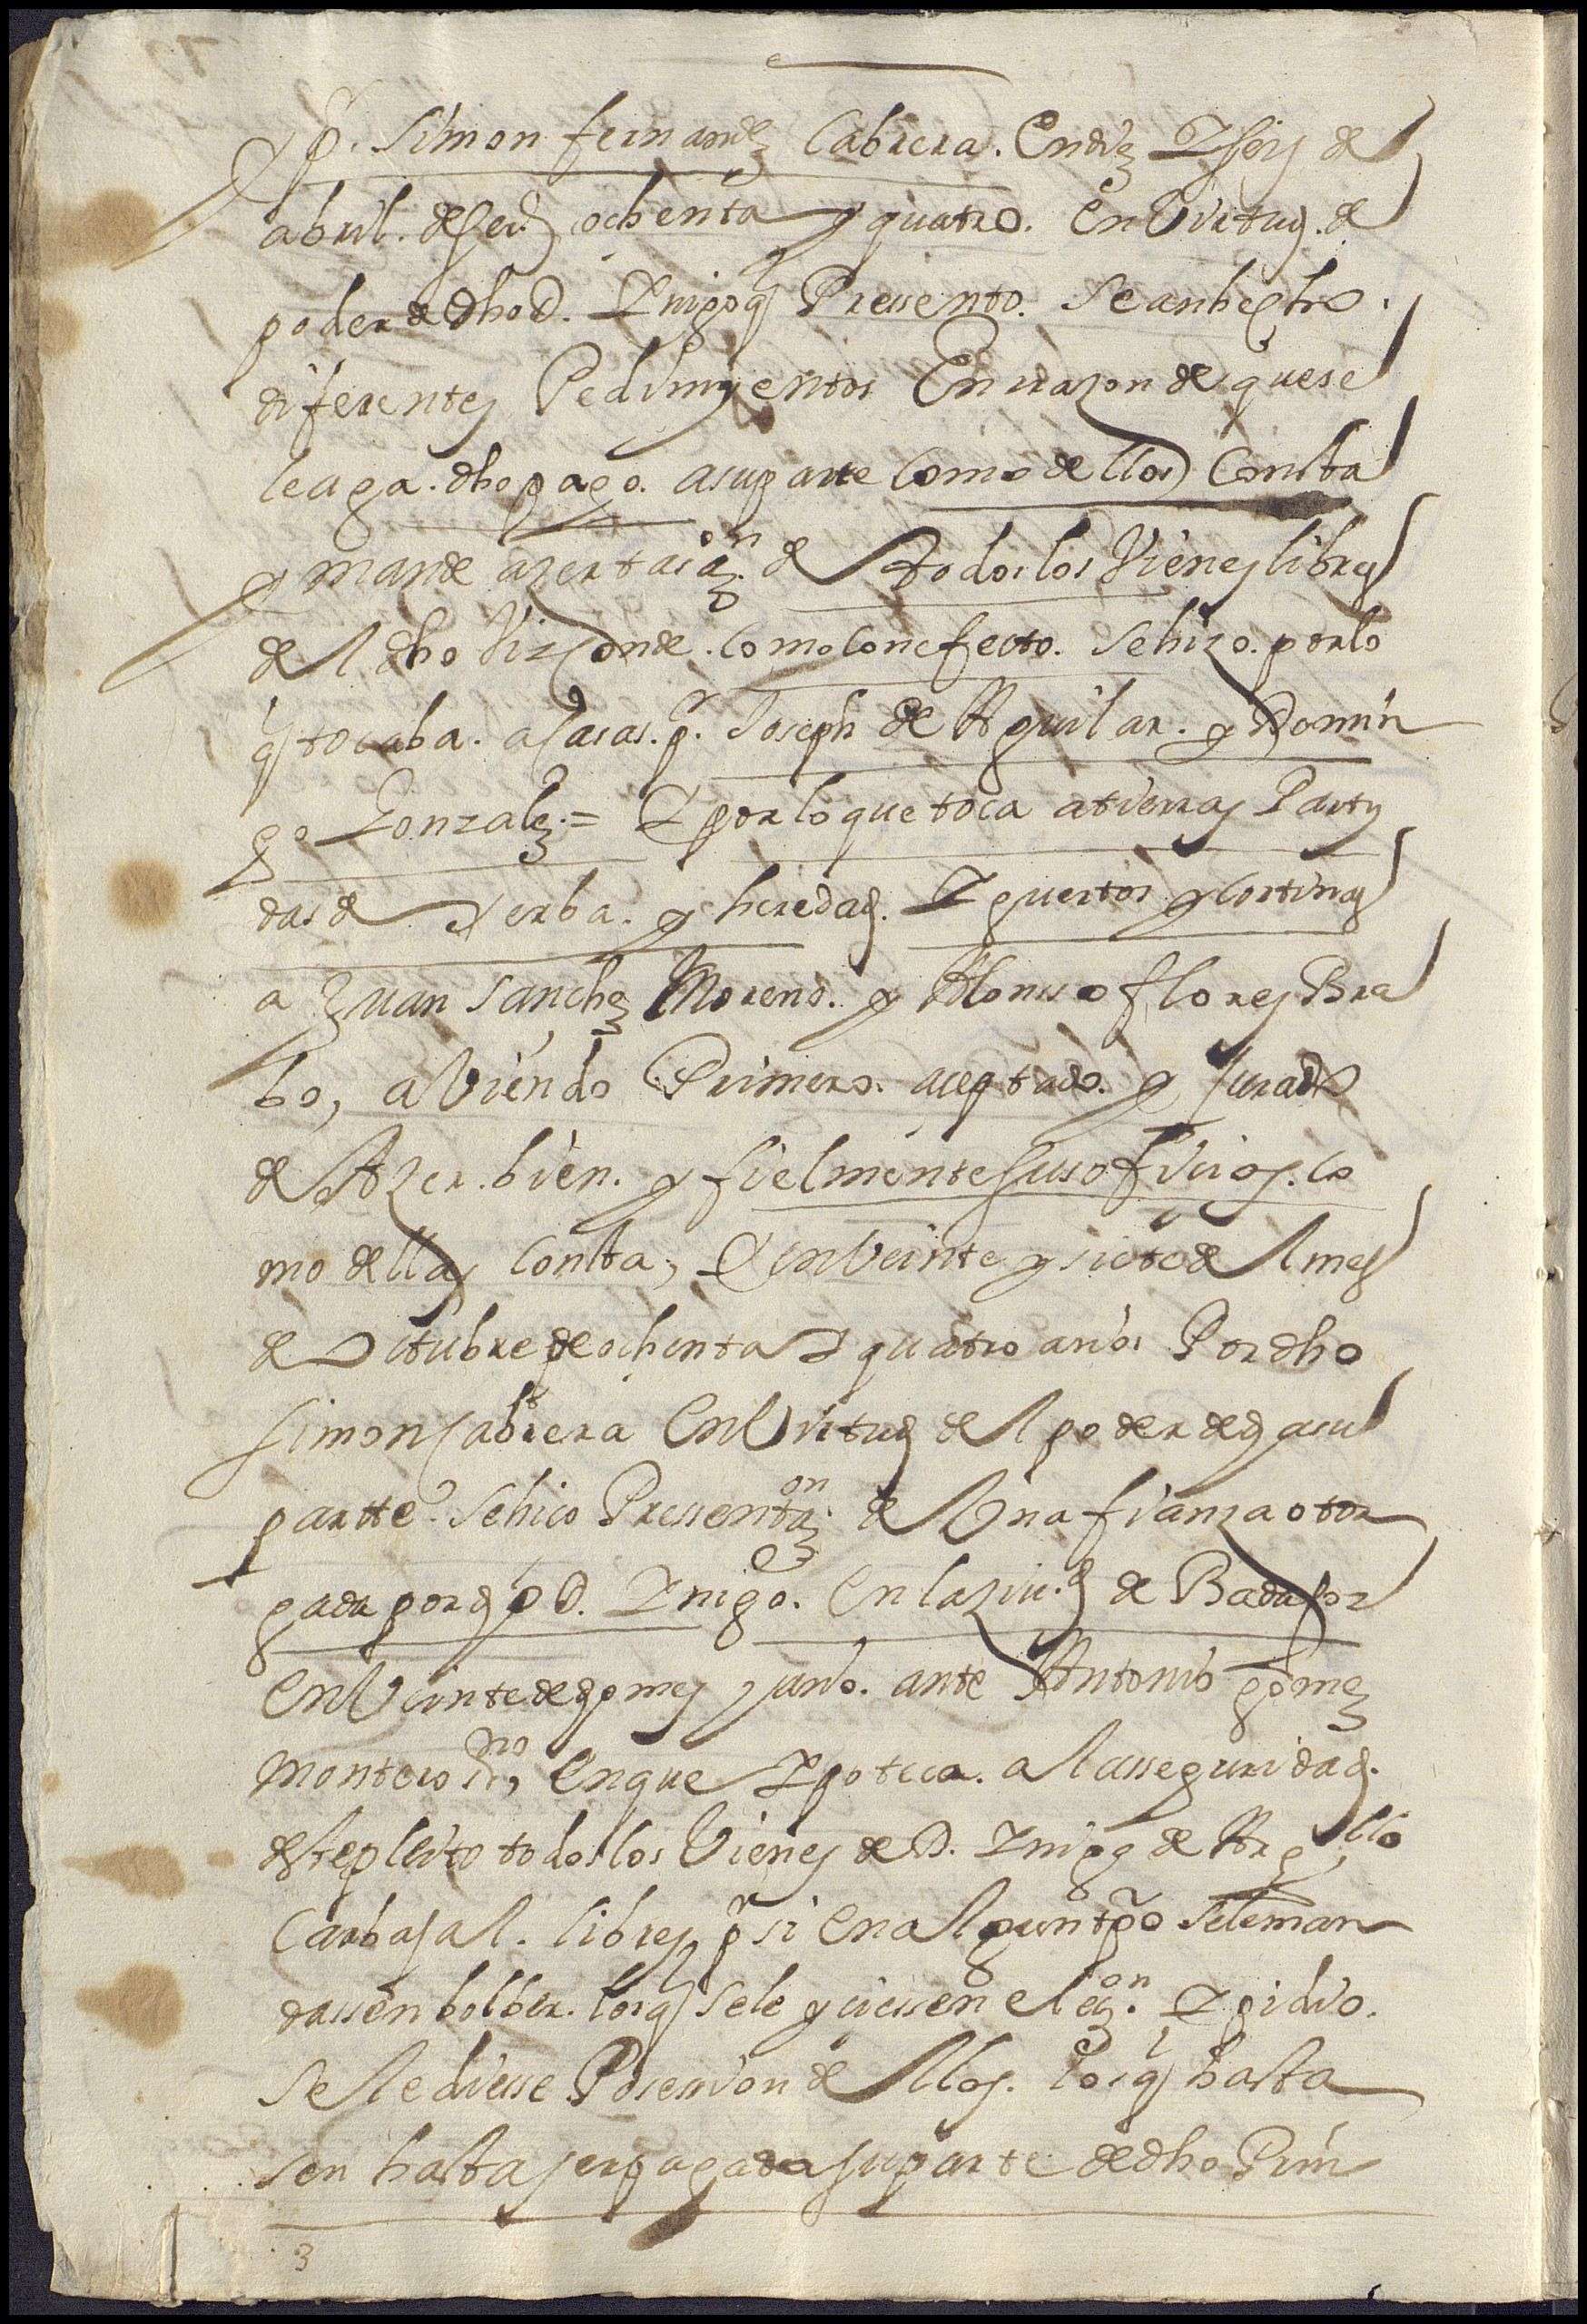 Y p.r Simon fernandz Cabrera. En diez Y seis de
abril. de sei.s ochenta y quatro. en Virtud. de
poder de dho D. Ynigo q Pressento. Se an hecho
diferentes Pedimyentos En razon de que se
le aga. dho pago. a su parte como dellos Consta
y mande azertaciaz.on de todos los Vienes libres
del dho Vizconde. como con efecto. se hizo. por lo
q tocaba. a casas. p.r Joseph de Aguilar. y Domin
go Gonzalez. = Y por lo que toca a tierras Parti
das de Yerba. y heredad. Y guertos y cortinas
a Juan Sanchez Moreno. y Alonso flores Bra
bo, abiendo Primero. aceptado. y jurado
de Azer. bien. y fielmente sus ofizios. co
mo della consta, Y en Veinte y siete del mes
de Octubre de ochenta Y quatro años Por dho
Simon Cabrera en Virtud del poder de su
parte. se hico Pressentaz.on de Una fianza otor
gada por D. Ynigo. en la ziu.d de Badajoz
en Veinte de mes y año. ante Antonio gomez
montero, en que Ypoteca. a la sseguridad.
deste pleito todos los Vienes de D. Ynigo de Arguello
Carbajal. libres p.r si en algun tpo se le man
dassen bolber. los q se le yciessen ele.on Y pidio.
se le diesse Possesion dellos. los q basta
sen hasta ser pagada su parte de dho Prin
3